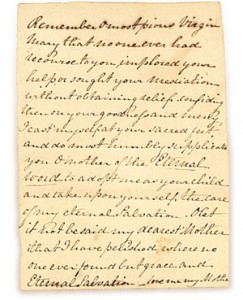 Remember O most pious Virgin
Mary that no one ever had
recourse to you, implored your
help or sought your mediation
without obtaining relief. Confiding
then on your goodness and mercy
I cast myself at your sacred feet
and do most humbly supplicate
you O Mother of the Eternal
Word to adopt me as your child
and take upon yourself, the care
of my eternal Salvation. O let
it not be said my dearest Mother
that I have perished, where no
one ever found but grace and
Eternal Salvation me my Mother